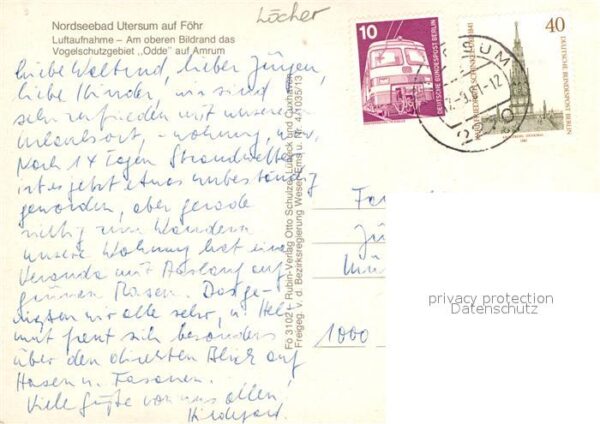 Nordseebad Utersum auf Föhr
Luftaufnahme – Am oberen Bildrand das
Vogelschutzgebiet „Odde" auf Amrum
Löcher
Liebe Waltraud, lieber Jürgen,
liebe Kinder, wir sind
sehr zufrieden mit unserem
Urlaubsort, -wohnung,
Nach 14 Tagen Strandwetter
ist es jetzt etwas unbeständig
geworden, aber gerade
richtig zum Wandern
unsere Wohnung hat eine
Veranda mit Ausgang auf
grünen Rasen. Das ge-
nießen wir alle sehr, u. Hel-
mut freut sich besonders
über den direkten Blick auf
Hasen u. Fasanen.
Viele Grüße von uns allen,
Hildegard.
Fö 3102 r Rubin-Verlag Otto Schulze, Lübeck und Cuxhaven
Freigeg. v. d. Bezirksregierung Weser-Ems u. Nr. 4/1035/13
10
DEUTSCHE BUNDESPOST BERLIN
40
DEUTSCHE BUNDESPOST BERLIN
1841
1981
-12
2270
Fa
Jü
1000
privacy protection
Datenschutz